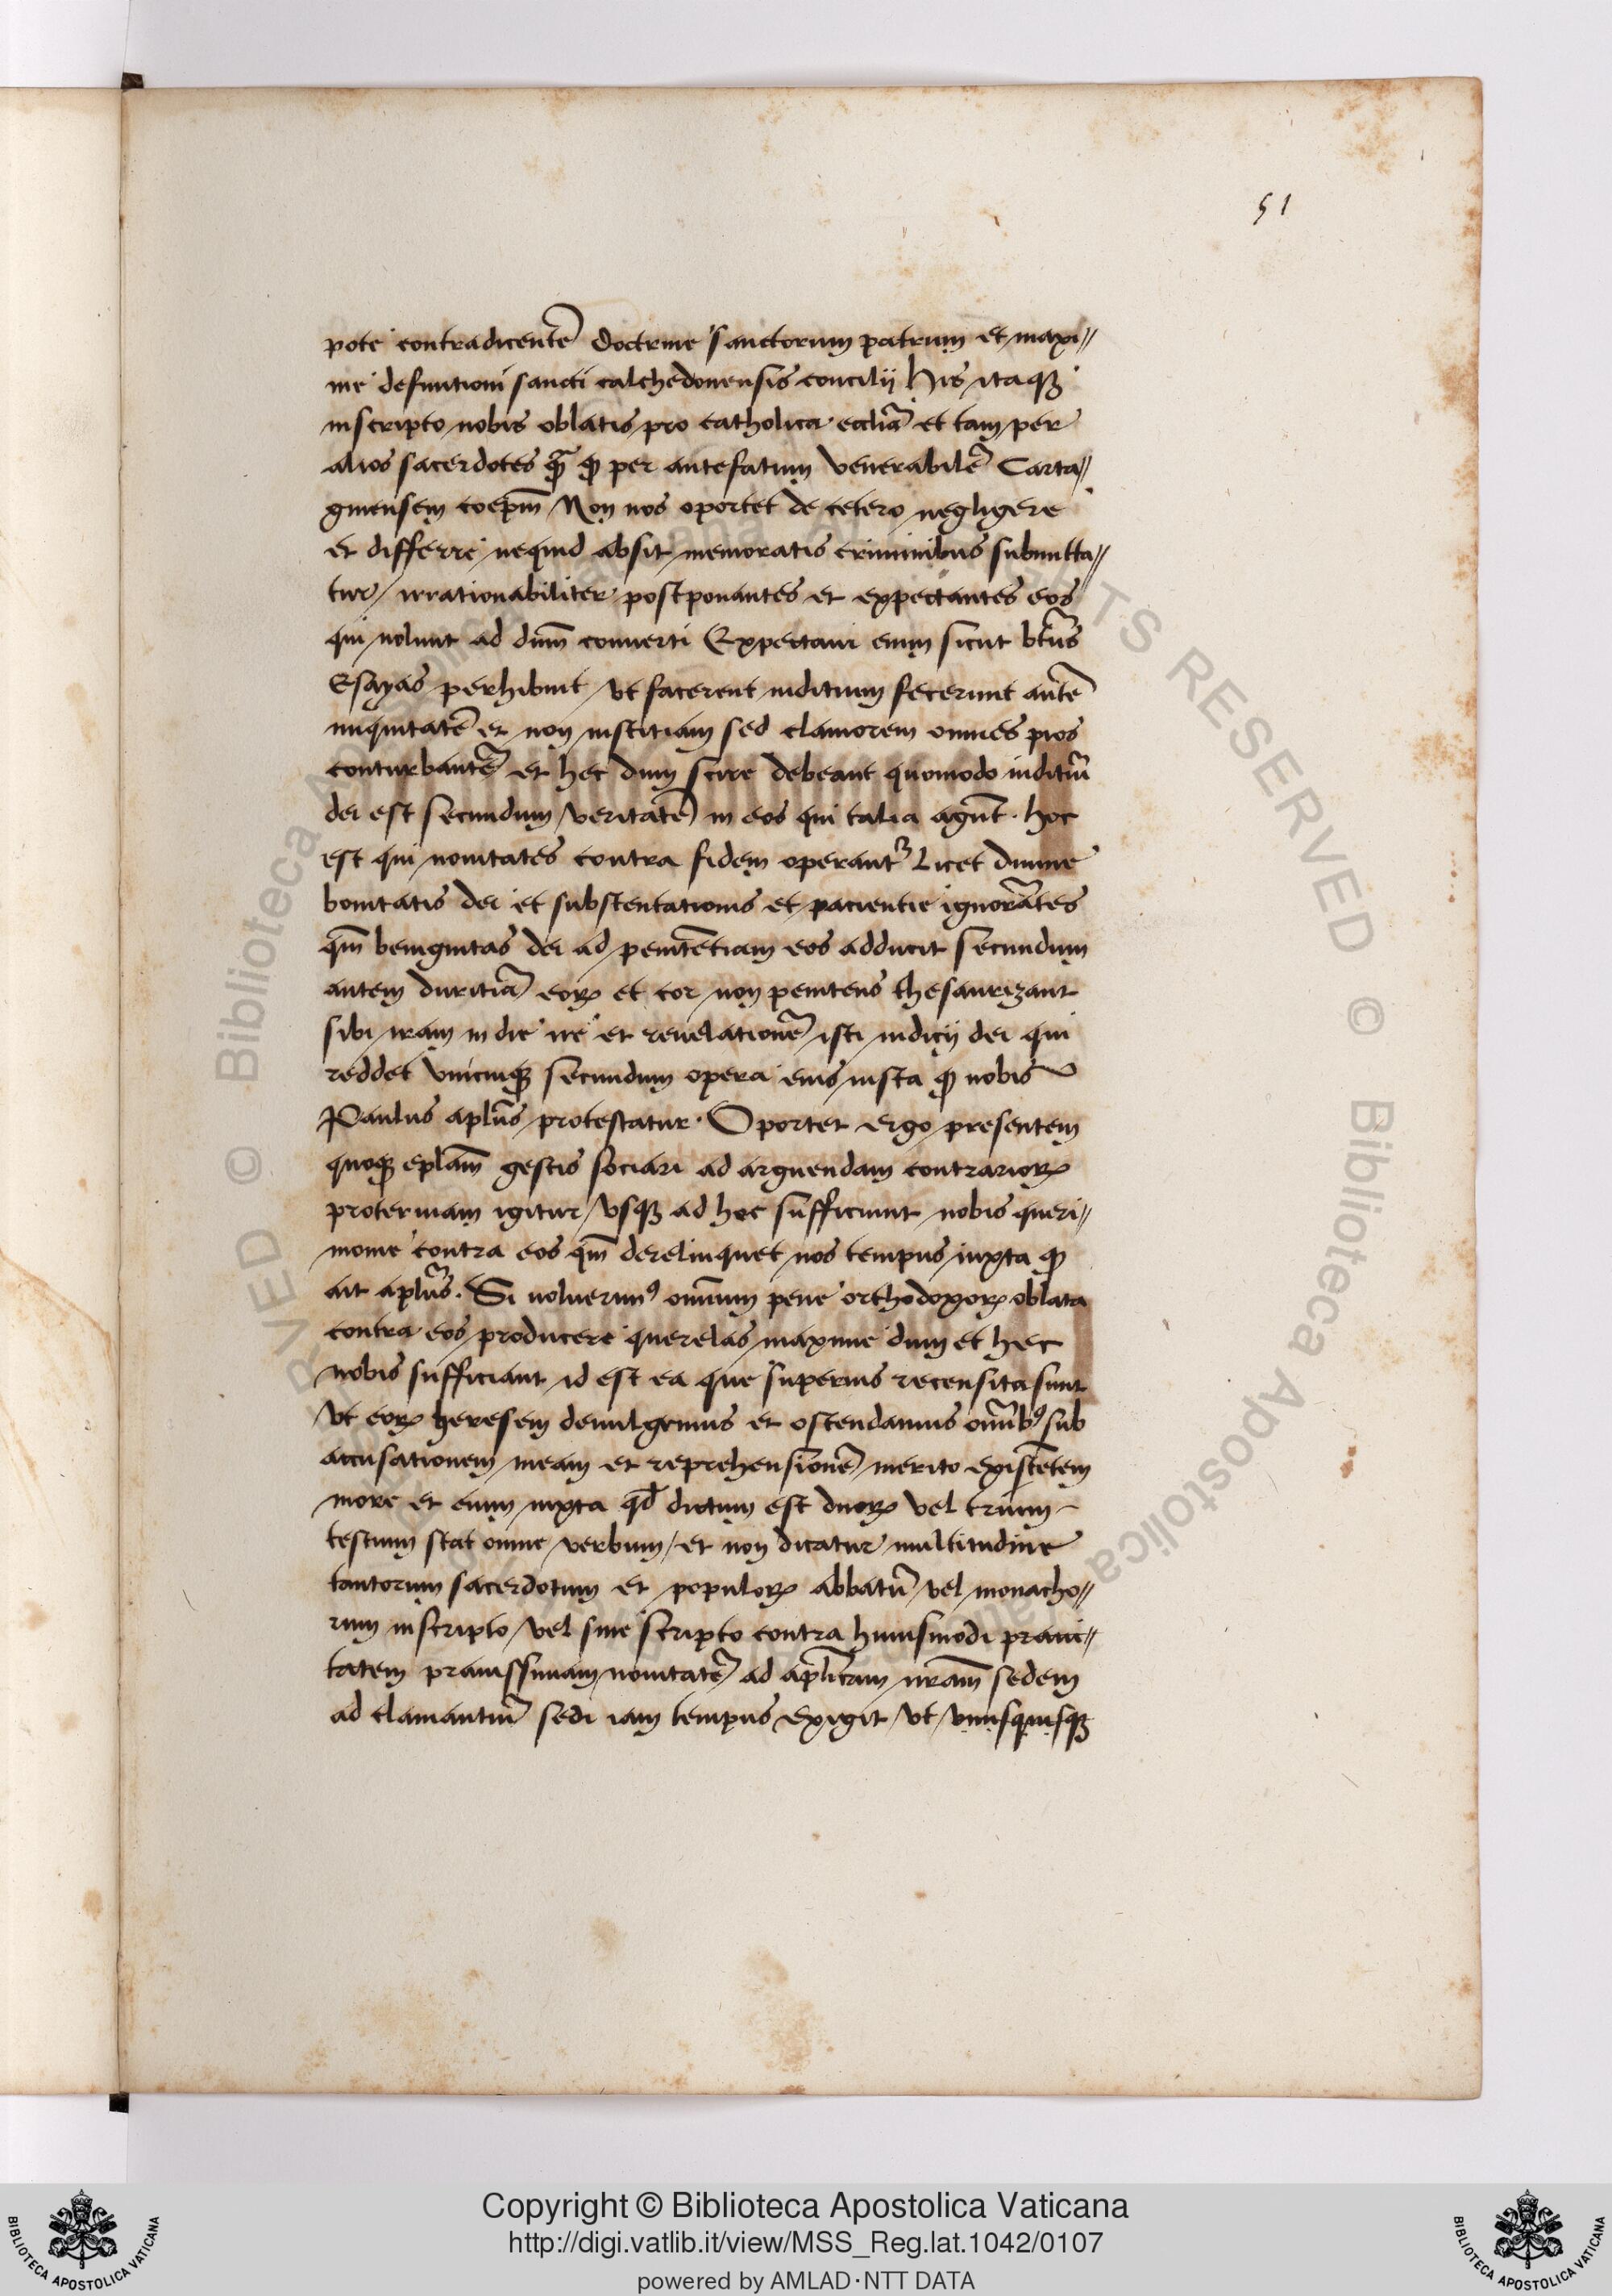 51
pote contradicentẽ doctrine sanctorum patrum et maxi//
me definitioni sancti calchedonensis concilij His itaqꝫ
in scripto nobis oblatis pro catholica eccliã et tam per
alios sacerdotes qͣ̃ ꝙ per antefatum venerabilẽ Carta//
ginensem coepm̃ Non nos oportet de cetero negligere
et differre nequid absit memoratis criminibus submitta//
tur / irrationabiliter postponantes et expectantes eos
qui nolunt ad dnm̃ conuerti Expectaui enim sicut bt̃us
Esayas perhibuit vt facerent iuditium fecerunt autẽ
iniquitatẽ et non iustitiam sed clamorem omnes pios
conturbantẽ et hec dum scire debeant quomodo iuditiũ
dei est secundum veritatẽ in eos qui talia agũt. hoc
est qui nouitates contra fidem operantꝛ Licet diuine
bonitatis dei et substentationis et pacientie ignorãtes
qm̃ benignitas dei ad penitẽtiam eos adducit secundum
autem duritiã eoꝝ et cor non penitens thesaurizant
sibi iram in die ire et reuelationẽ isti iudicij dei qui
reddet vnicuiqꝫ secundum opera eius iusta ꝙ nobis
Paulus aplũs protestatur. Oportet ergo presentem
quoqꝫ eplam̃ gestis sociari ad arguendam contrarioꝝ
proteruiam igitur vsqꝫ ad hec sufficiunt nobis queri//
monie contra eos qm̃ derelinquet nos tempus iuxta ꝙ
ait aplũs. Si voluerimꝰ omnium pene orthodoxoꝝ oblata
contra eos producere querelas maxime dum et hec
nobis sufficiant id est ea que superius recensita sunt
vt eoꝝ heresem deuulgemus et ostendamus omĩbꝰ sub
accusationem meam et reprehensionẽ merito existẽtem
more et enim iuxta qđ dictum est duoꝝ vel trium
testium stat omne verbum / et non dicatur multitudine
tantorum sacerdotum et populoꝝ abbatũ vel monacho//
rum in scripto vel sine scripto contra huiusmodi praui//
tatem prauissimam nouitatẽ ad aplicam̃ nram̃ sedem
ad clamantiũ sedi iam tempus exigit vt vnusquisqꝫ
Copyright © Biblioteca Apostolica Vaticana
http://digi.vatlib.it/view/MSS_Reg.lat.1042/0107
powered by AMLAD·NTT DATA